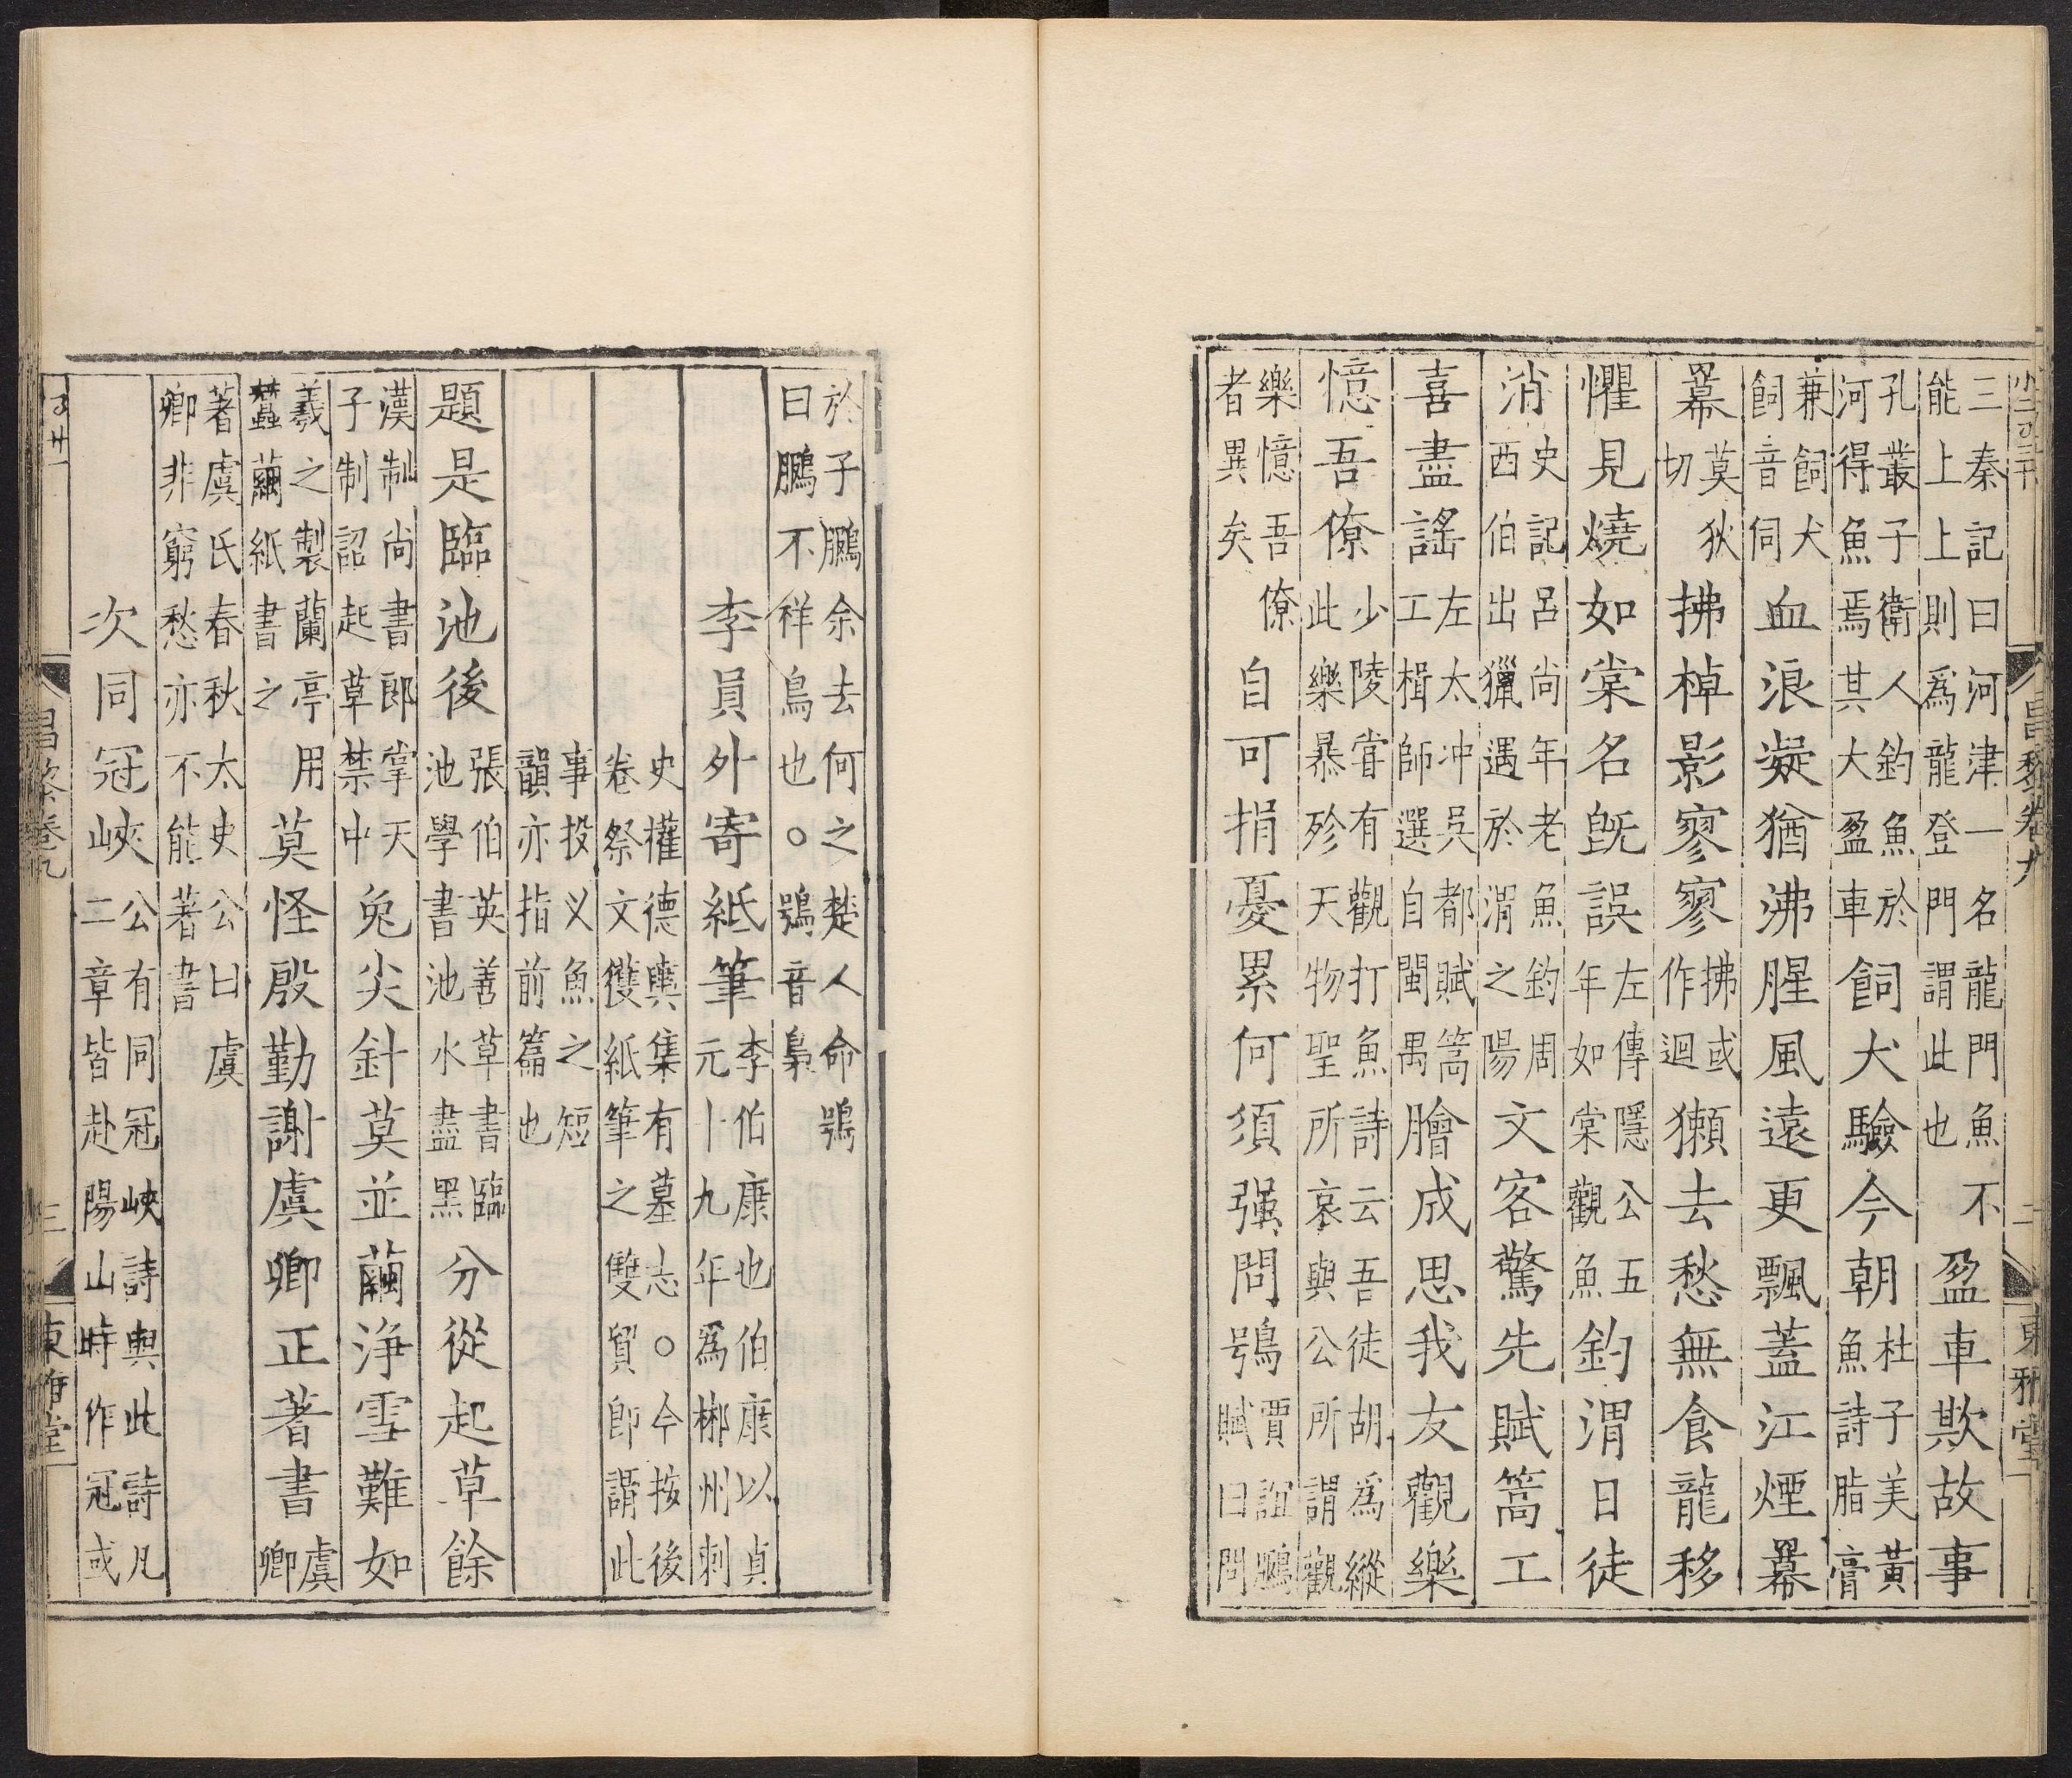 三秦記曰河津一名龍門魚不
能上上則爲龍登門謂此也盈車欺故事
孔叢子衛人釣魚於
河得魚焉其大盈車飼犬驗今朝杜子美黃
魚詩脂膏
兼飼犬
飼音伺血浪凝猶沸腥風遠更飄蓋江煙羃
羃莫狄
切拂棹影寥寥拂或
作迴獺去愁無食龍移
懼見燒如棠名旣誤左傳隱公五
年如棠觀魚釣渭日徒
消史記呂尚年老魚釣周
西伯出獵遇於渭之陽文客驚先賦篙工
喜盡謠左太冲吳都賦篙
工檝師選自閩禺膾成思我友觀樂
憶吾僚少陵嘗有觀打魚詩云吾徒胡爲縱
此樂暴殄天物聖所哀與公所謂觀
樂憶吾僚
者異矣自可捐憂累何須强問鴞賈誼鵩
賦曰問
昌黎卷九
二
東雅堂
於子鵩余去何之楚人命鴞
曰鵩不祥鳥也○鴞音梟
李員外寄紙筆李伯康也伯康以貞
元十九年爲郴州刺
史權德輿集有墓志○今按後
卷祭文獲紙筆之雙貿卽謂此
事投乂魚之短
韻亦指前篇也
題是臨池後張伯英善草書臨
池學書池水盡黑分從起草餘
漢制尚書郎掌天
子制詔起草禁中兔尖針莫並繭淨雪難如
羲之製蘭亭用
蠶繭紙書之莫怪殷勤謝虞卿正著書虞
卿
著虞氏春秋太史公曰虞
卿非窮愁亦不能著書
次同冠峽公有同冠峽詩與此詩凡
二章皆赴陽山時作冠或
昌黎卷九
三
東雅堂